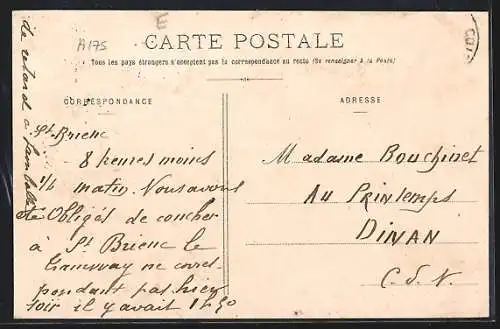 A175
E
CARTE POSTALE
Tous les pays étrangers n'acceptent pas la correspondance au recto (Se renseigner à la Poste)
CORRESPONDANCE
ADRESSE
St Brieuc
8 heures moins
1/4 matin. Nous avons
été Obligés de coucher
à St Brieuc le
Tramway ne corres-
pondant pas hier
soir il y avait 1h50
de retard à Lamballe
Madame Bouchinet
Au Printemps
DINAN
C. d. N.